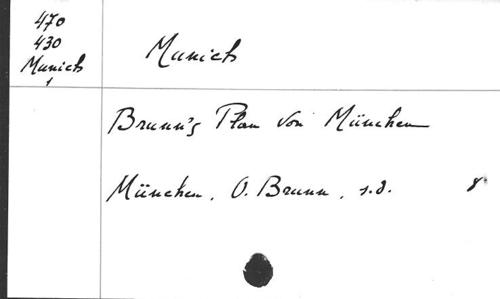 470
430
Munich
1
Munich
Brunn's Plan von München
München, O. Brunn, s.d.
8°